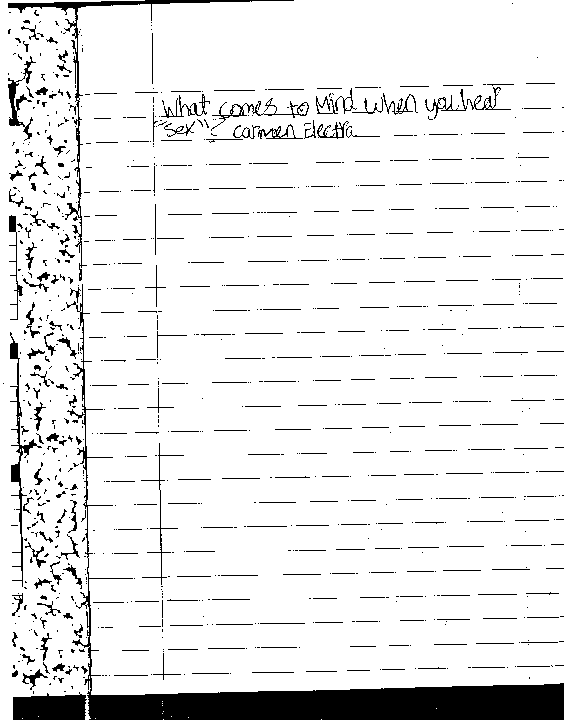 What comes to Mind when you hear
"Sex"? Carmen Electra